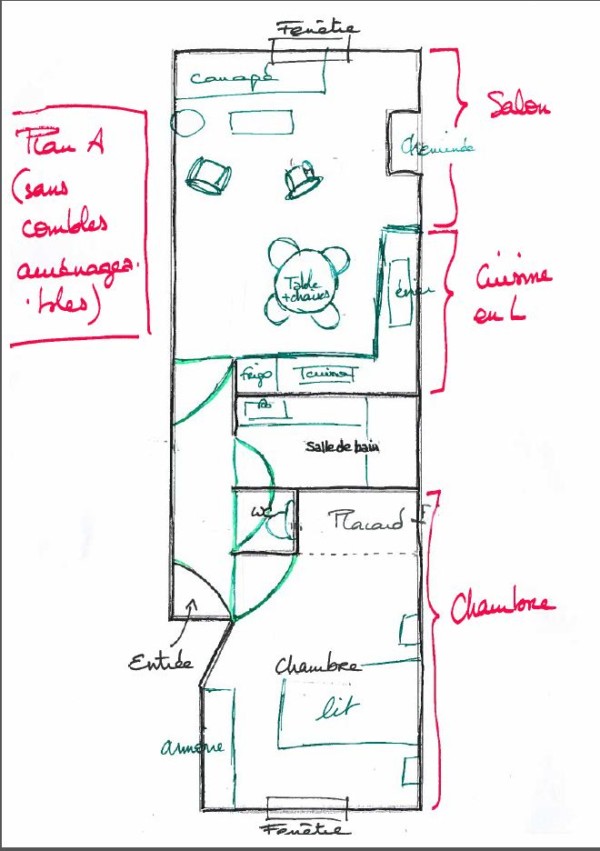 Fenêtre
canapé
Salon
Cheminée
Plan A
(sans
combles
aménagea-
-bles)
Table
+chaises
évier
Cuisine
en L
frigo
Salle de bain
WC
Placard
F
Chambre
Entrée
Chambre
lit
armoire
Fenêtre